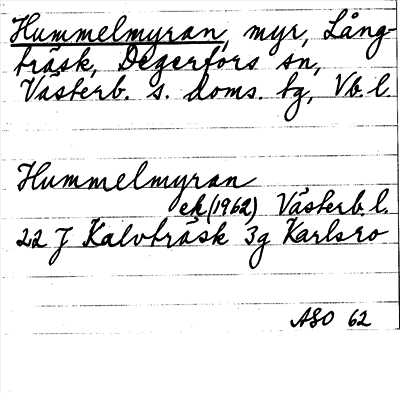 Hummelmyran, myr, Lång-
träsk, Degerfors sn,
Västerb. s. doms. tg, Vb. l.
Hummelmyran
ek (1962) Västerb. l.
22 J Kalvträsk 3g Karlsro
ASO 62